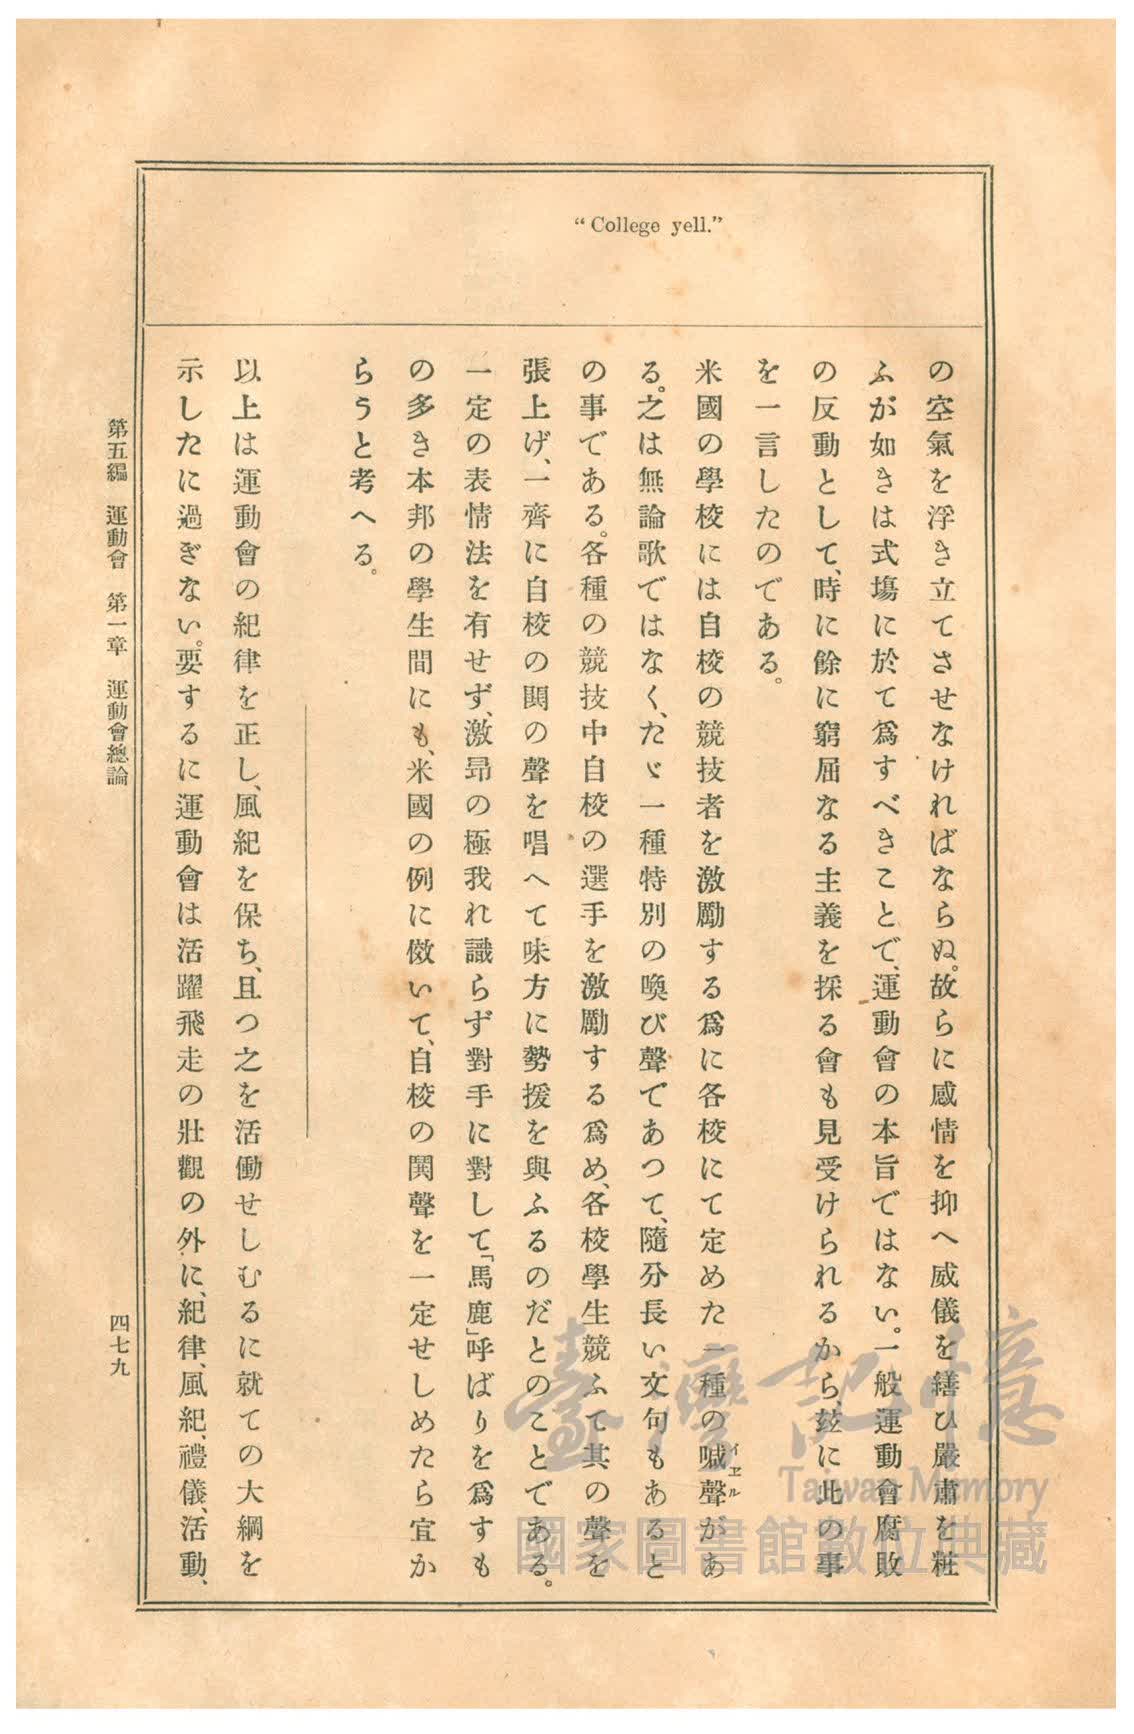 “College yell.”
の空氣を浮き立てさせなければならぬ。故らに感情を抑へ威儀を繕ひ嚴肅を粧
ふが如きは式塲に於て爲すべきことで、運動會の本旨ではない。一般運動會腐敗
の反動として、時に餘に窮屈なる主義を採る會も見受けられるから、玆に此の事
を一言したのである。
米國の學校には自校の競技者を激勵する爲に各校にて定めた一種の喊聲があ
イエル
る。之は無論歌ではなく、たゞ一種特別の喚び聲であつて、隨分長い文句もあると
の事である。各種の競技中自校の選手を激勵する爲め、各校學生競ふて其の聲を
張上げ、一齊に自校の鬨の聲を唱へて味方に勢援を與ふるのだとのことである。
一定の表情法を有せず、激昂の極我れ識らず對手に對して「馬鹿」呼ばりを爲すも
の多き本邦の學生間にも、米國の例に傚いて、自校の鬨聲を一定せしめたら宜か
らうと考へる。
以上は運動會の紀律を正し、風紀を保ち、且つ之を活働せしむるに就ての大綱を
示したに過ぎない。要するに運動會は活躍飛走の壯觀の外に、紀律、風紀、禮儀、活動、
第五編　運動會　第一章　運動會總論
四七九
臺灣記憶
Taiwan Memory
國家圖書館數位典藏